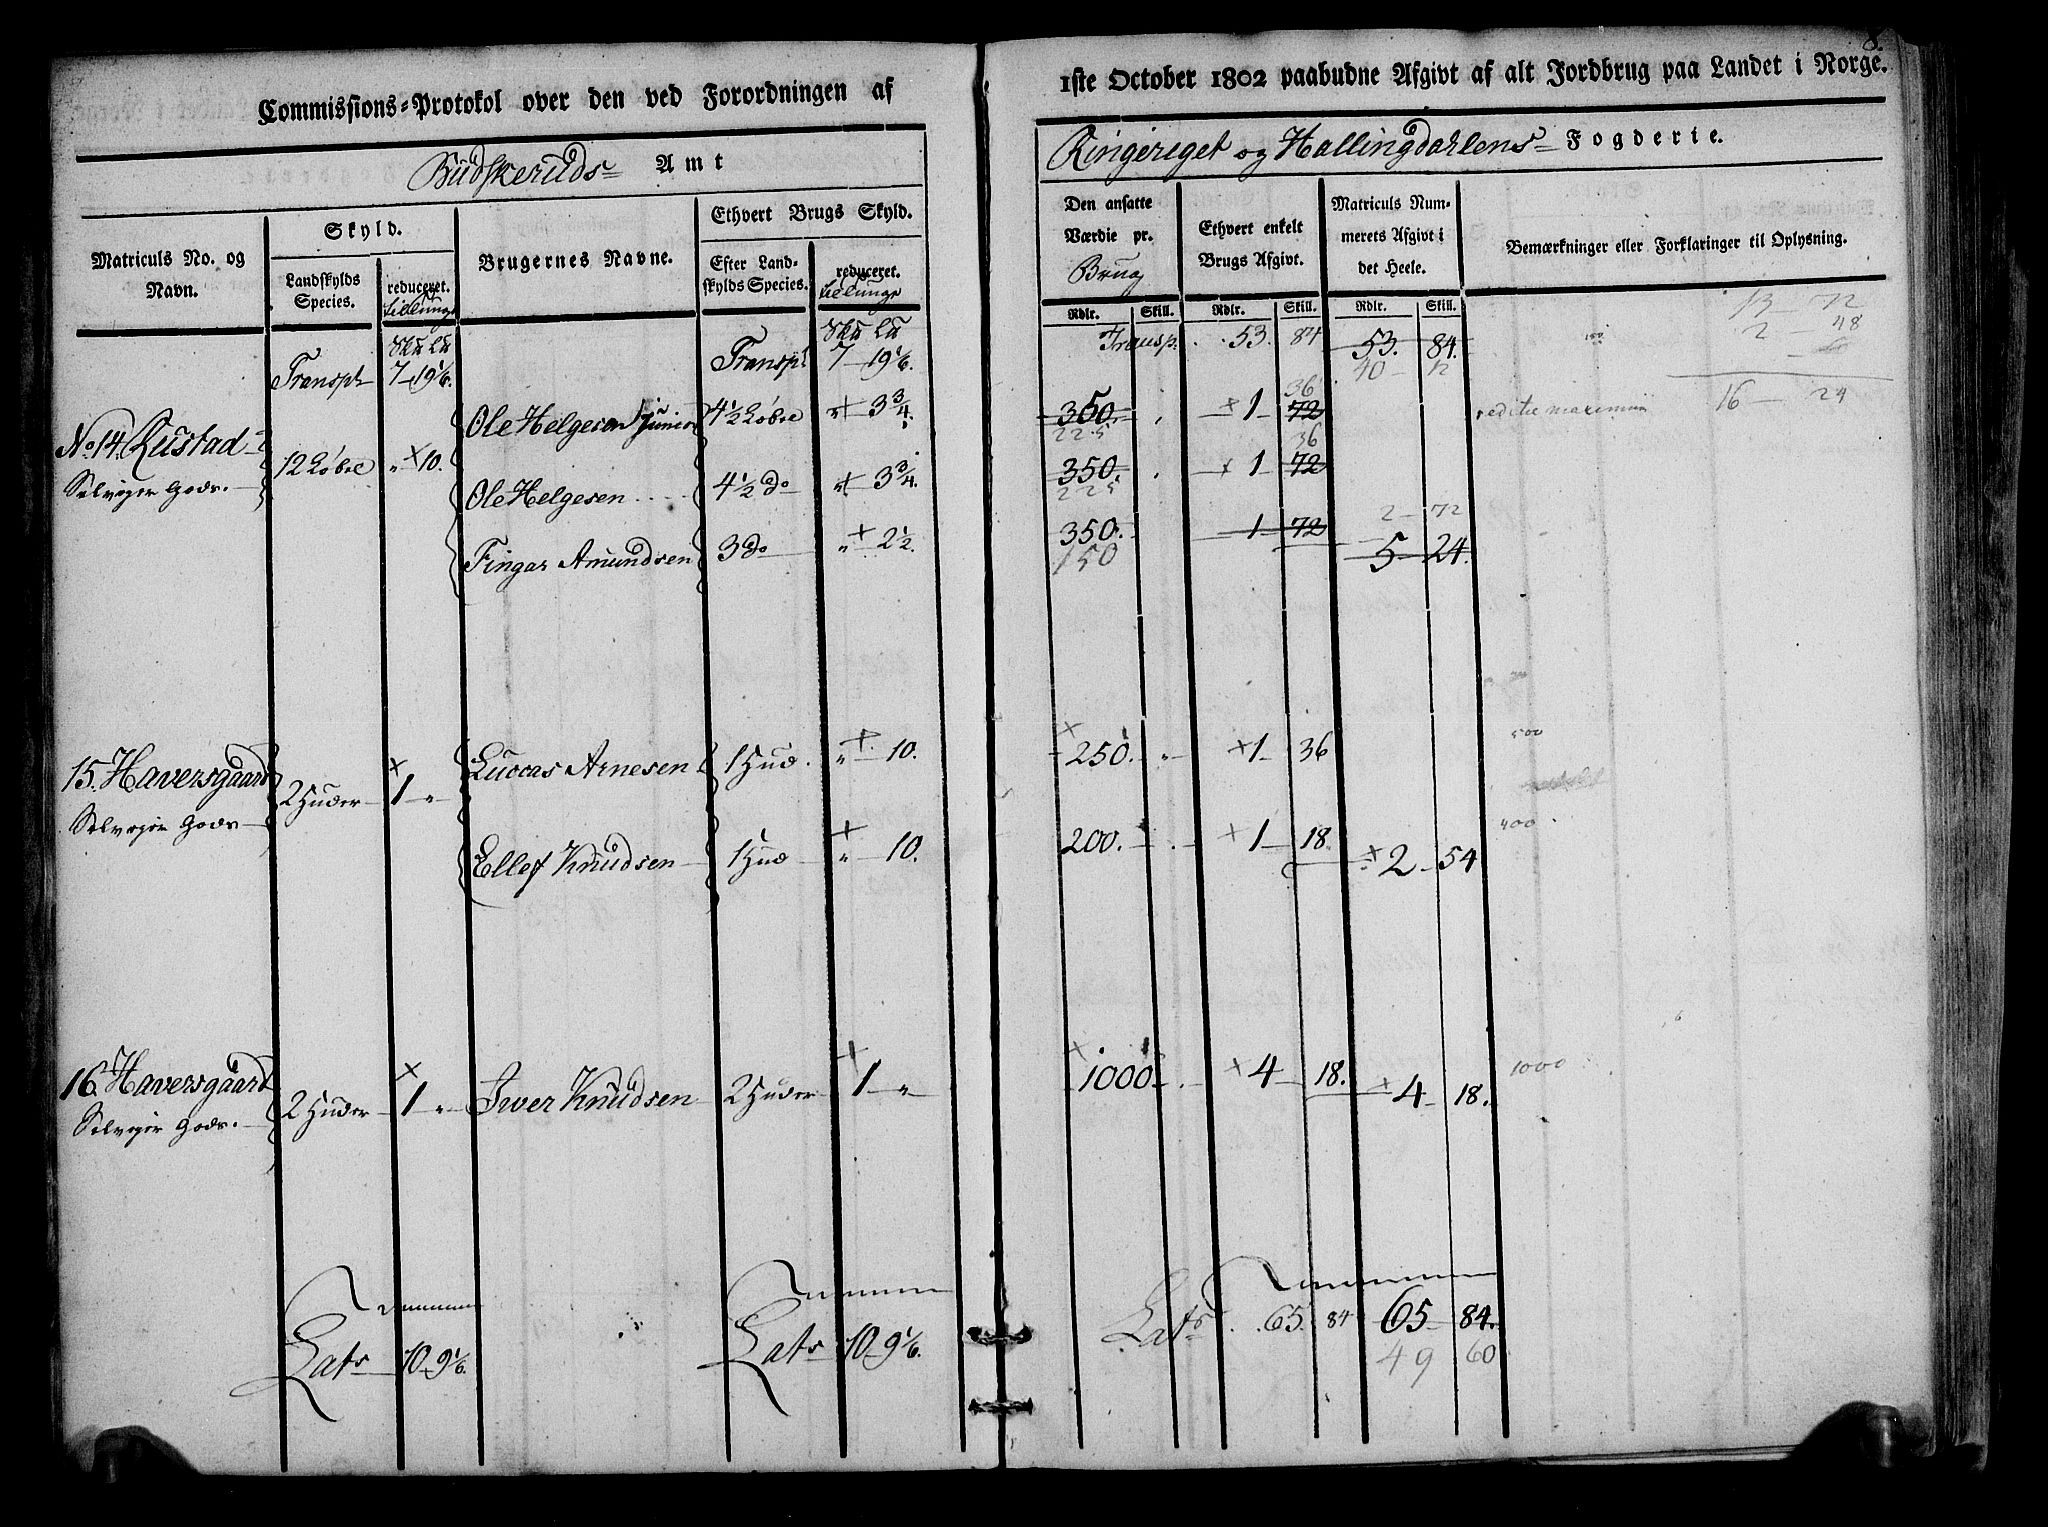 8.
Commissions-Protokol over den ved Forordningen af 1ste October 1802 paabudne Afgivt af alt Jordbrug paa Landet i Norge.
Budskeruds Amt
Ringeriget og Hallingdahlens Fogderie.
Matriculs No. og Navn.
Skyld.
Landskylds Species.
reduceret.
Brugernes Navne.
Ethvert Brugs Skyld.
Efter Landskylds Species.
reduceret.
Den ansatte Værdie pr. Brug
Rdlr. Skill.
Ethvert enkelt Brugs Afgivt.
Rdlr. Skill.
Matriculs Nummerets Afgivt i det Heele.
Rdlr. Skill.
Bemærkninger eller Forklaringer til Oplysning.
Transpt 7 19 1/6. Transpt 7 19 1/6. Transp. 53. 84 53. 84.
No. 14. Rustad 12 Løbse 10. Ole Helgesen Junior 4 1/2 Løbse 3 3/4. 350. 1 72
225 36
Selveier Gods. Ole Helgesen 4 1/2 do 3 3/4. 350. 1 72
225 36
Fingar Amundsen 3 do 2 1/2. 350. 1 72 5 24.
150 2 72
13 72
2 48
16 24
15. Haversgaard 2 Huder 1 Luccas Arnesen 1 Hud 10. 250. 1 36 500
Selveier Gods Ellef Knudsen 1 Hud 10. 200. 1 18 2 54 400
16. Haversgaard 2 Huder 1 Iwer Knudsen 2 Huder 1 1000 4 18. 4 18. 1000
Selveier Gods.
Lats 10 9 1/6. Lats 10 9 1/6. Lats 65. 84 65 84.
49 60